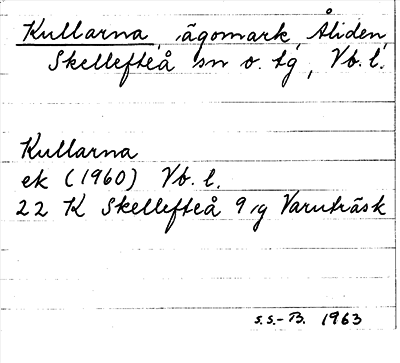 Kullarna, ägomark, Åliden,
Skellefteå sn o. tg, Vb. l.
Kullarna
ek (1960) Vb. l.
22 K Skellefteå 9 g Varuträsk
S.S.-B. 1963